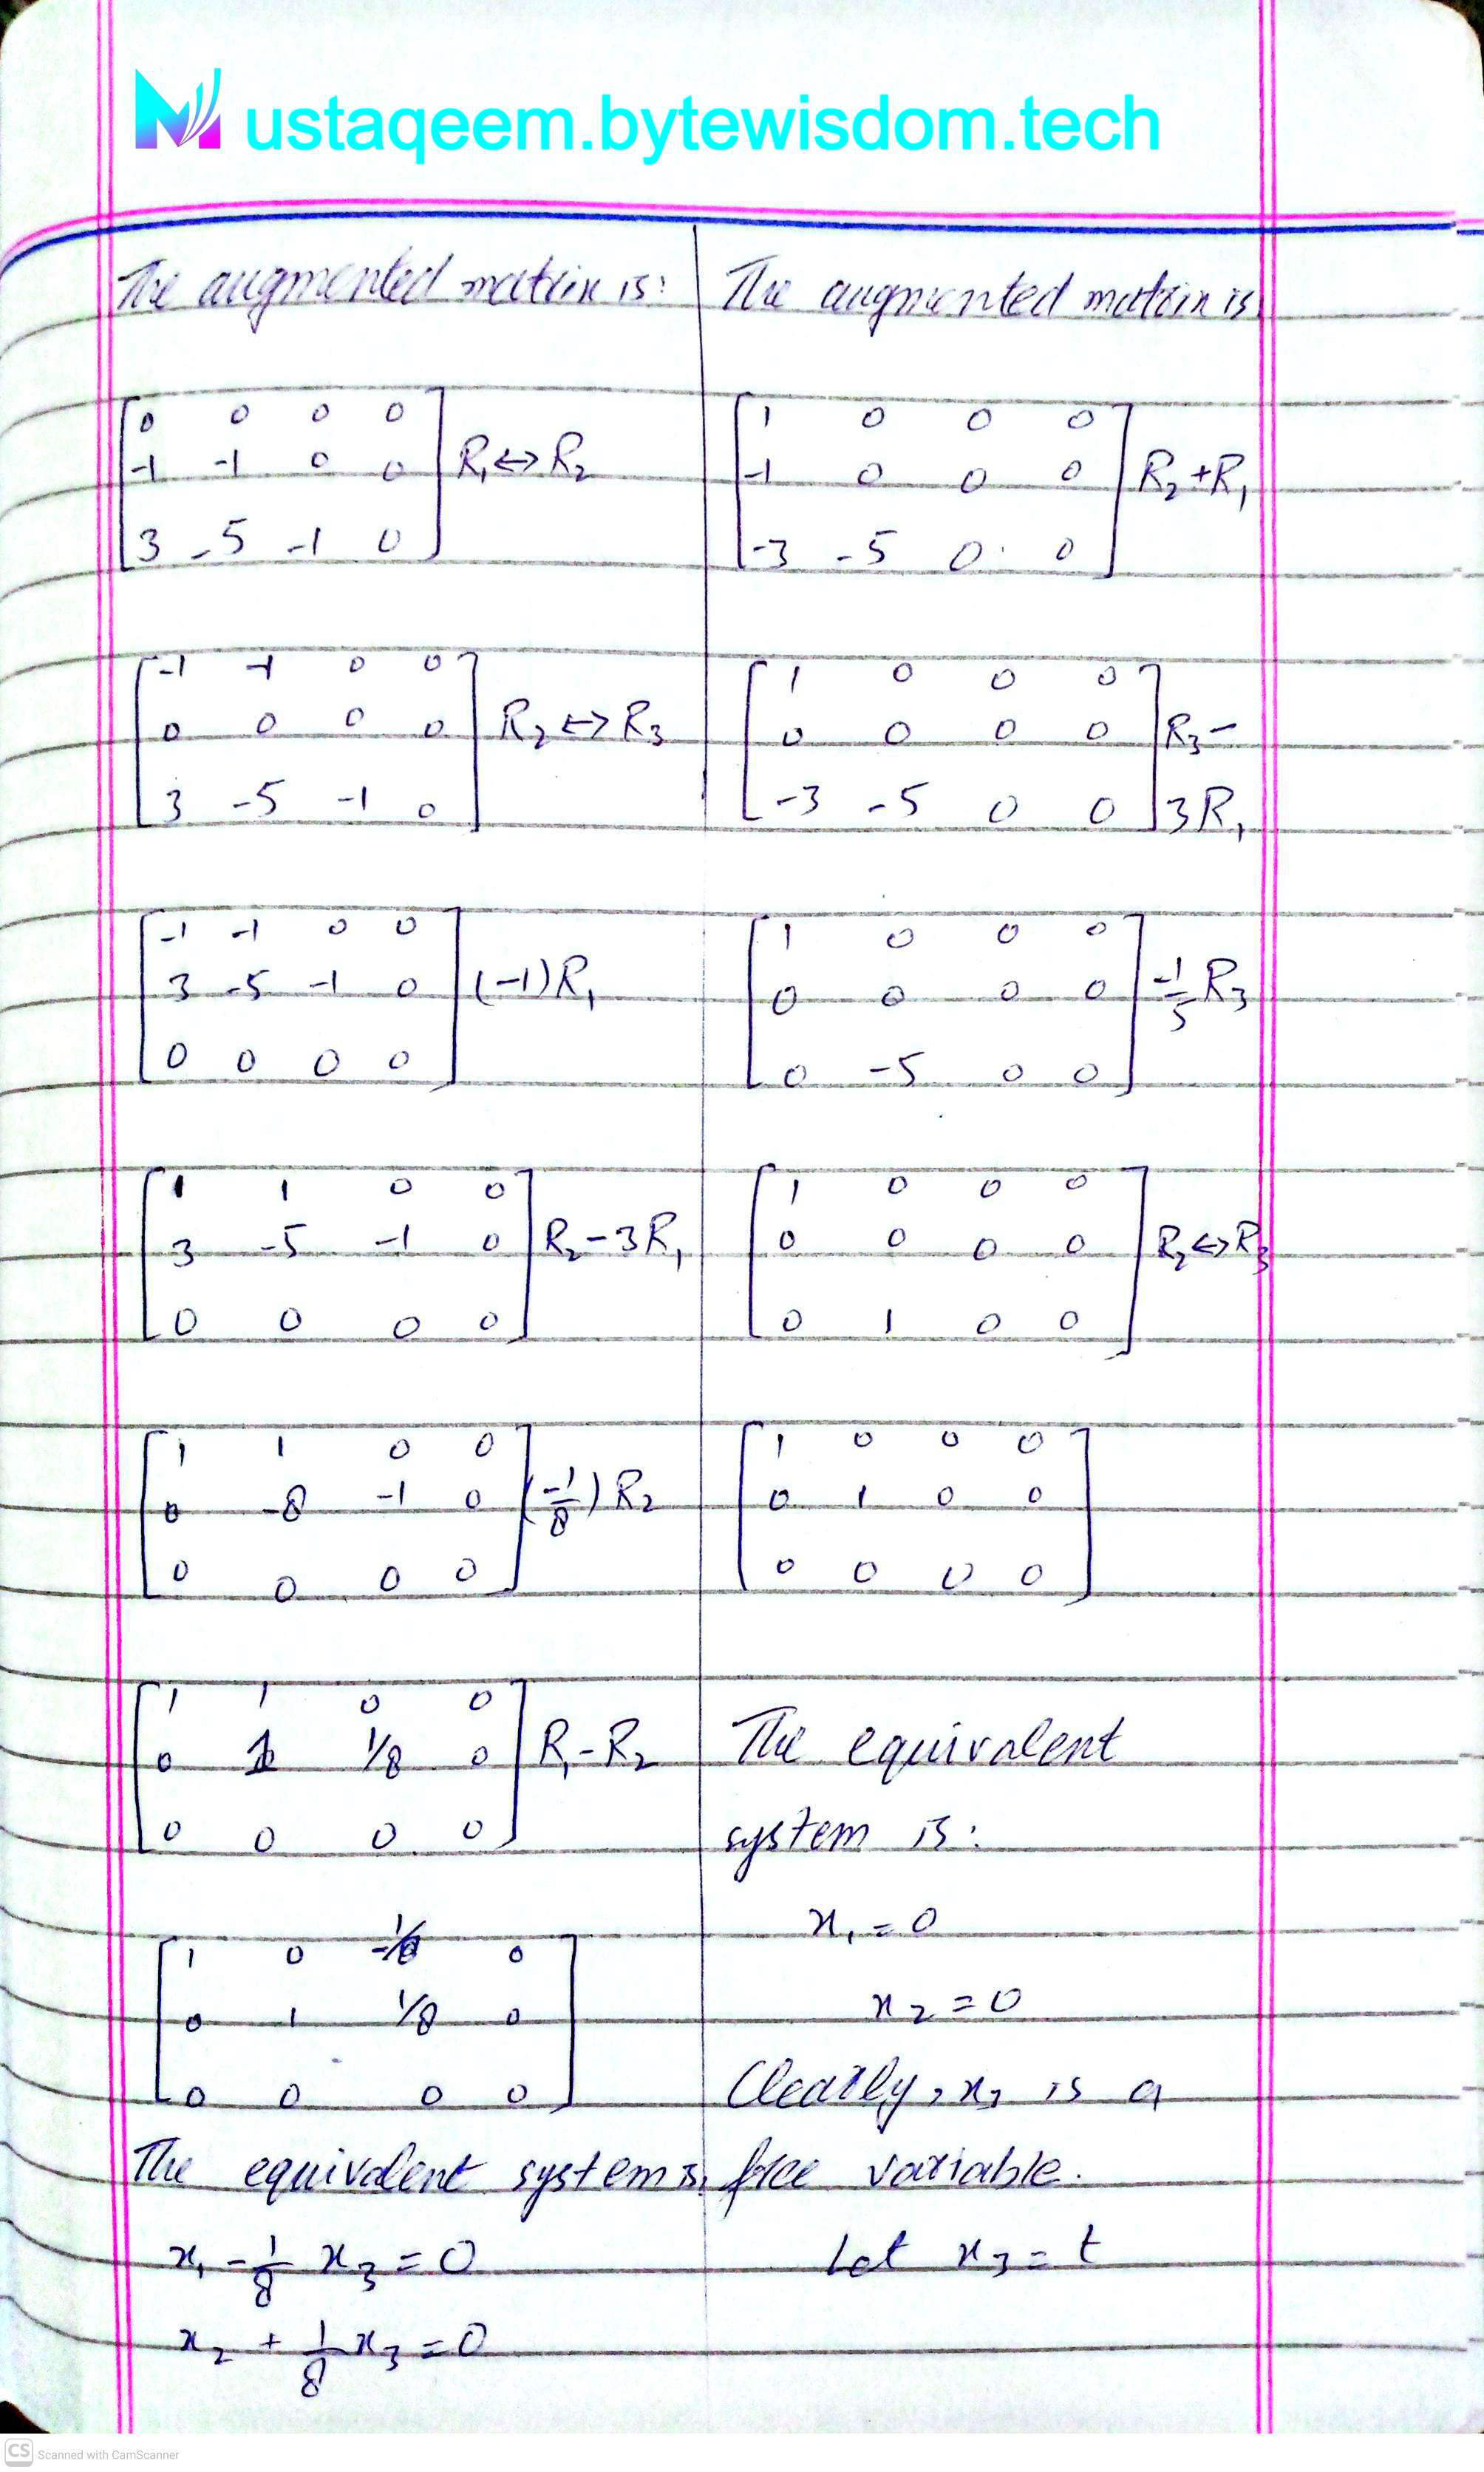 Mustaqeem.bytewisdom.tech
The augmented matrix is:
0 0 0 0
-1 -1 0 0 R₁ ↔ R₂
3 -5 -1 0
-1 -1 0 0
0 0 0 0 R₂ ↔ R₃
3 -5 -1 0
-1 -1 0 0
3 -5 -1 0 (-1)R₁
0 0 0 0
1 1 0 0
3 -5 -1 0 R₂-3R₁
0 0 0 0
1 1 0 0
0 -8 -1 0 (-1/8)R₂
0 0 0 0
1 1 0 0
0 1 1/8 0 R₁-R₂
0 0 0 0
1 0 -1/8 0
0 1 1/8 0
0 0 0 0
The equivalent system is,
x₁ - 1/8 x₃ = 0
x₂ + 1/8 x₃ = 0
The augmented matrix is
1 0 0 0
-1 0 0 0 R₂+R₁
-3 -5 0 0
1 0 0 0
0 0 0 0 R₃-
-3 -5 0 0 3R₁
1 0 0 0
0 0 0 0 -1/5 R₃
0 -5 0 0
1 0 0 0
0 0 0 0 R₂ ↔ R₃
0 1 0 0
1 0 0 0
0 1 0 0
0 0 0 0
The equivalent
system is:
x₁ = 0
x₂ = 0
Clearly, x₃ is a
free variable.
Let x₃ = t
CS Scanned with CamScanner